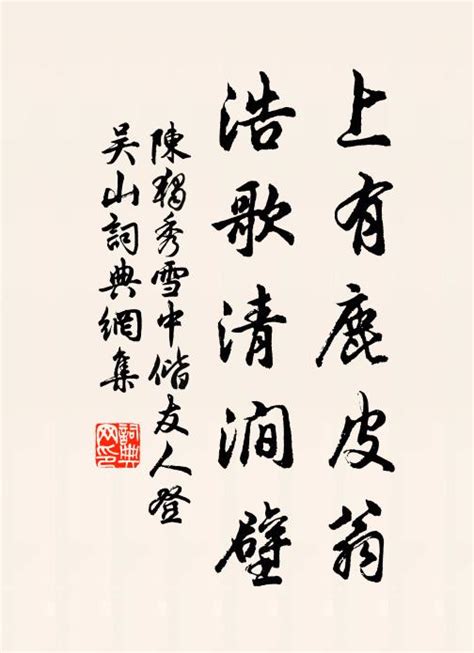 上有鹿皮翁
浩歌清澗壁
陳獨秀雪中偕友人登
吳山詞典網集
詞典網印